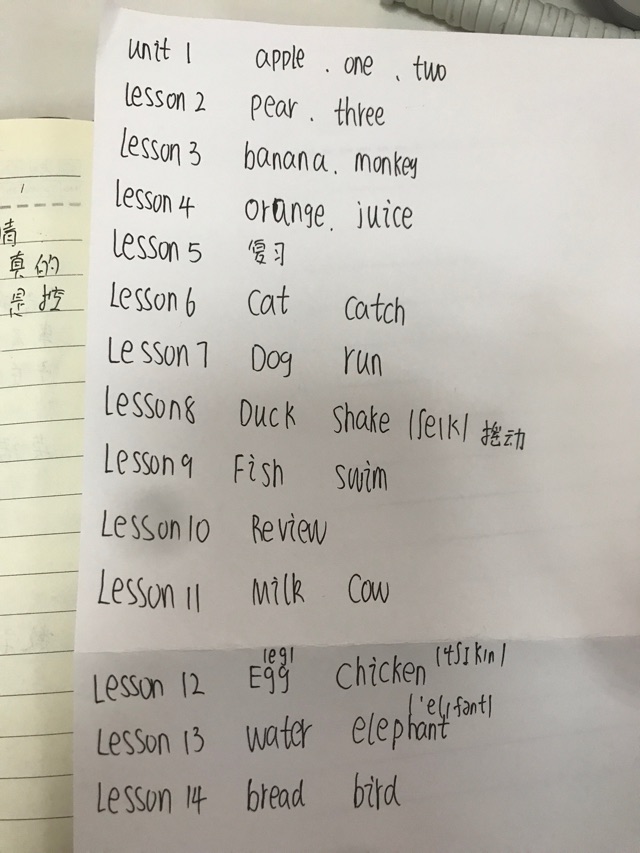 unit 1 apple . one 、 two
Lesson 2 pear . three
Lesson 3 banana . monkey
Lesson 4 orange . juice
Lesson 5 复习
Lesson 6 Cat Catch
Lesson 7 Dog run
Lesson 8 Duck Shake |ʃeɪk| 摇动
Lesson 9 Fish swim
Lesson 10 Review
Lesson 11 Milk Cow
|eg| |tʃɪkɪn|
Lesson 12 Egg Chicken
|ˈelɪfənt|
Lesson 13 water elephant
Lesson 14 bread bird
真的